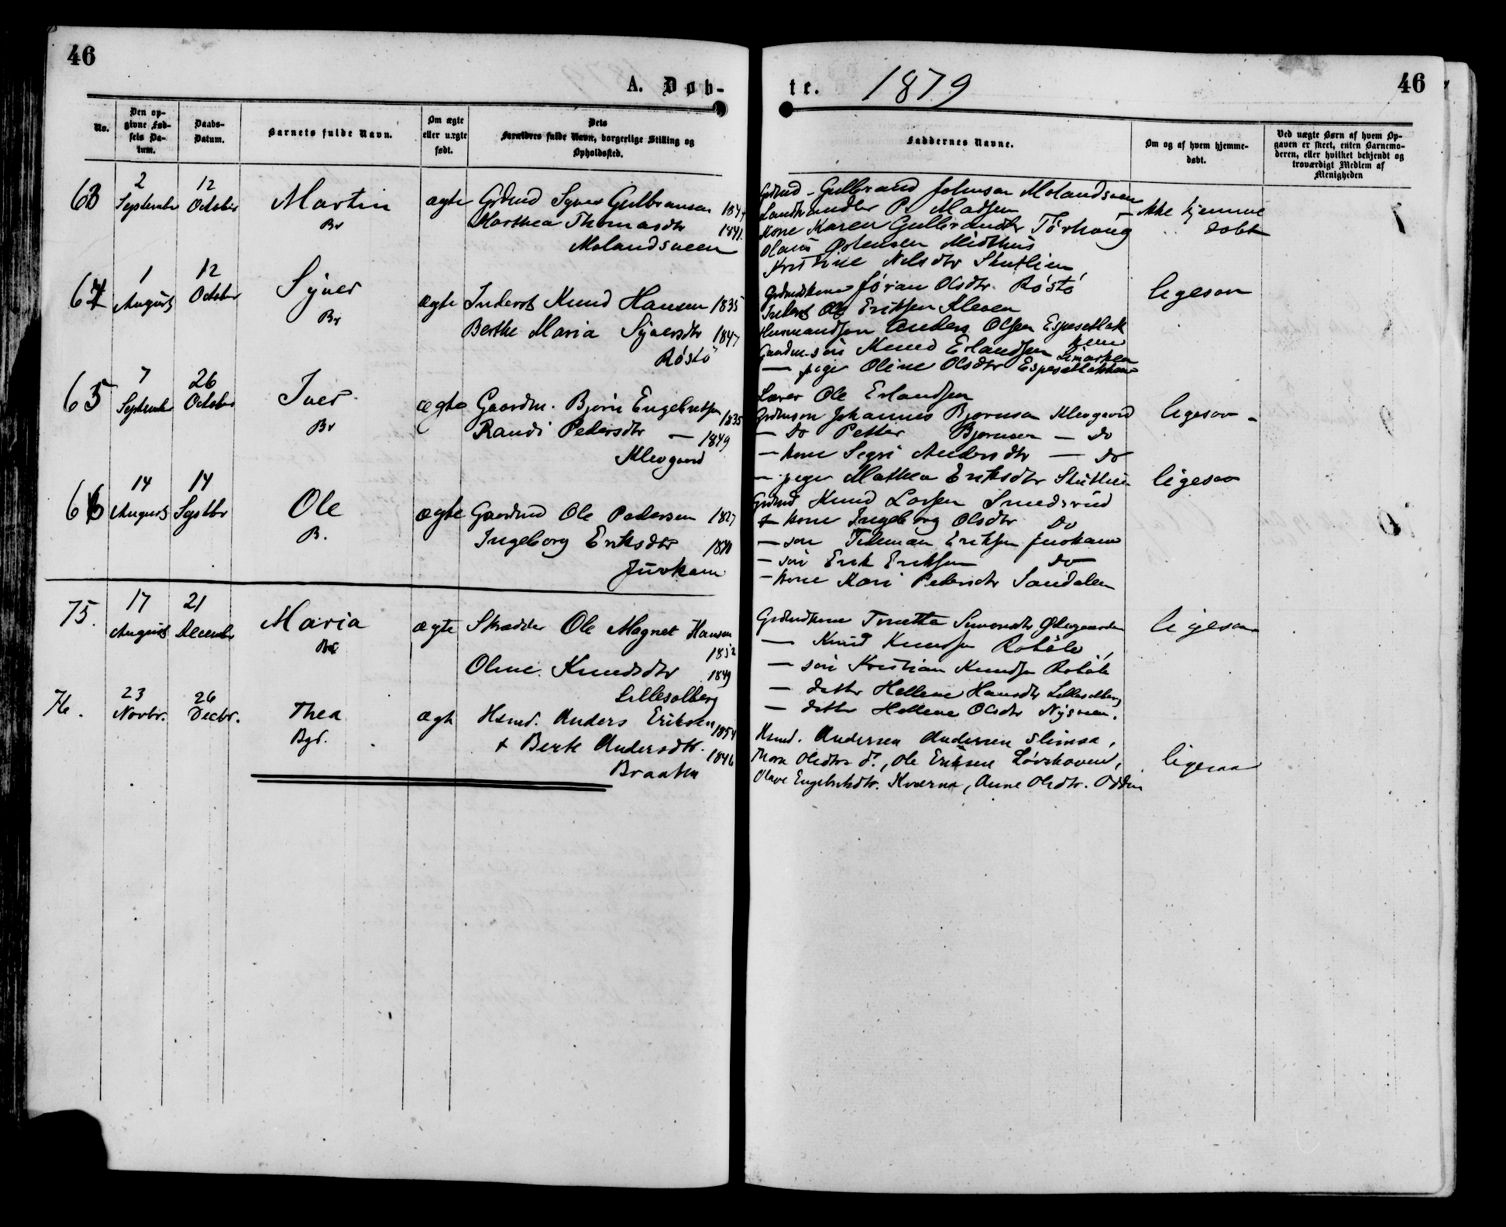 46
A. Døb-
No.
Den op-
givne Fød-
sels Da-
tum.
Daabs-
Datum.
Barnets fulde Navn.
Om ægte
eller uægte
født.
Dets
Forældres fulde Navn, borgerlige Stilling og
Opholdssted.
63
2
September
12
October
Martin
Br
ægte
Grdmd Syver Gulbransen 1844
Marthea Thomasdtr 1841
Molandsveen
64
1
August
12
October
Syver
Br
ægte
Inderst Knud Hansen 1835
Berthe Maria Syversdtr 1847
Røstø
65
7
September
26
October
Iver
Br
ægte
Gaardm. Bjørn Engebretsen 1835
Randi Pedersdtr — 1849
Klevgaard
66
14
August
14
Septbr
Ole
B.
ægte
Gaardmd Ole Pedersen 1827
Ingeborg Eriksdtr
Juvkam
75.
17
August
21
December
Maria
ægte
Skrædder Ole Magnet Hansen
1852
Oline Knudsdtr 1849
Lillesolberg
76.
23
Novbr.
26
Decbr.
Thea
Bgd.
ægte
Hsmd. Anders Eriksen 1854
+ Berte Andersdtr. 1846
Braaten
te. 1879
46
Faddernes Navne.
Om og af hvem hjemme-
døbt.
Ved uægte Børn af hvem Op-
gaven er skeet, enten Barnemo-
deren, eller hvilket bekjendt og
troværdigt Medlem af
Menigheden
Grdmd - Gulbrand Johnsen Molandsveen
Landhandler P. Madsen
Kone Karen Gulbrandsdtr Tørhaug
Olaus Østensen Midthus
Kristine Nelsdtr Skutlien
Ikke hjemme
døbt
Grdmdkone Jøran Olsdtr. Røstø
Inderst Ole Eriksen Kleven
Anders Olsen
Gaardm.søn Knud Erlandsen
— pige Oline Olsdtr
ligesaa
Lærer Ole Erlandsen
Grdmdsøn Johannes Bjørnsen Klevgaard
— do Petter Bjørnsen — do
— kone Segri Andersdtr — do
— pige Mathea Eriksdtr Skutlien
ligesaa -
Grdmd Knud Larsen Smedsrud
kone Ingeborg Olsdtr do
— søn Tideman Eriksen Juvkam
— søn Erik Eriksen do
— kone Kari Pedersdtr Sandalen
ligesaa
Grdmdkone Simensdtr
— Knud Knudsen Robøle
— søn Kristian Knudsen Robøle
— datter Hellene Hansdtr Lillesolberg
— datter Hellene Olsdtr Nysveen.
ligesaa
Hsmd. Andersen Andersen Slimsa,
Thora Olsdtr. do., Ole Eriksen Løvshoven,
Olave Engebretsdtr. Kværne, Anne Olsdtr. Odden
ligesaa